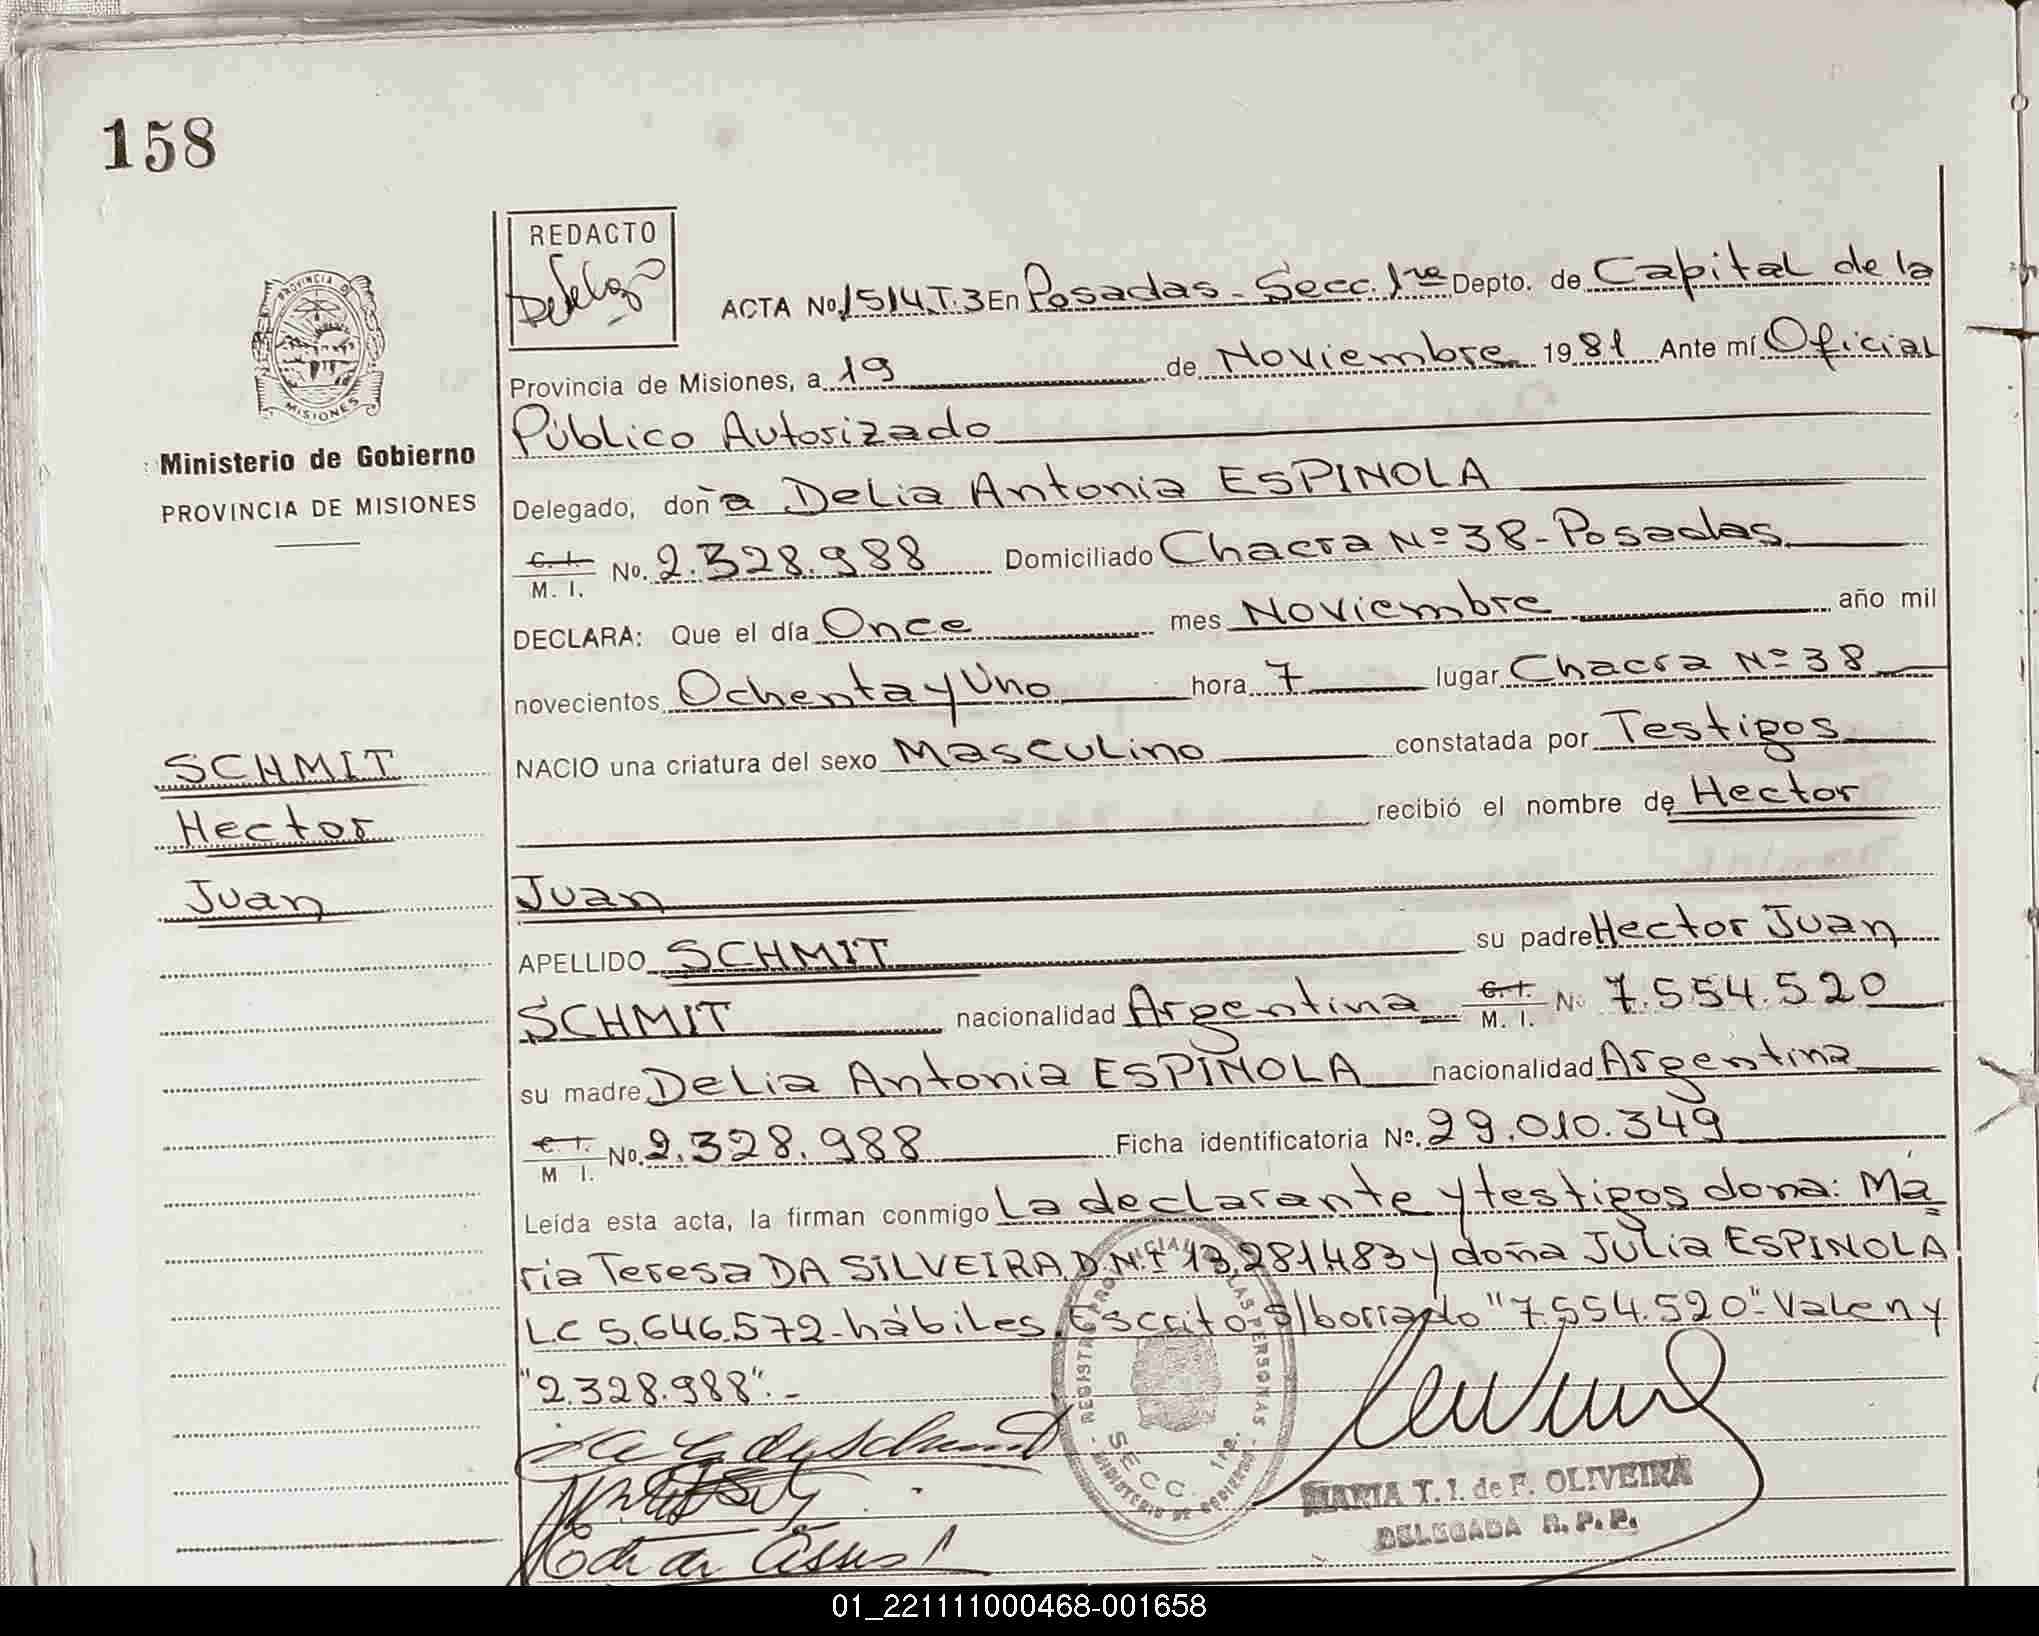 158
REDACTO
ACTA No 1514.T.3 En Posadas - Secc. 1ra Depto. de Capital de la
Provincia de Misiones, a 19 de Noviembre 1981 Ante mí Oficial
Público Autorizado
PROVINCIA D
MISIONES
Ministerio de Gobierno
PROVINCIA DE MISIONES
Delegado, doña Delia Antonia ESPINOLA
C. I. M. I. No. 2.328.988 Domiciliado Chacra Nº 38 - Posadas
DECLARA: Que el día Once mes Noviembre año mil
novecientos Ochenta y Uno hora 7 lugar Chacra Nº 38
NACIO una criatura del sexo Masculino constatada por Testigos
recibió el nombre de Hector
Juan
SCHMIT
Hector
Juan
APELLIDO SCHMIT su padre Hector Juan
SCHMIT nacionalidad Argentina C. I. M. I. Nº 7.554.520
su madre Delia Antonia ESPINOLA nacionalidad Argentina
C. I. M I. No. 2.328.988 Ficha identificatoria Nº. 29.010.349
Leída esta acta, la firman conmigo La declarante y testigos dona: Ma
ria Teresa DA SILVEIRA D.N.I 13.281483 y doña Julia ESPINOLA
LC 5.646.572 - hábiles. Escrito s/borrado "7.554.520" - Valen y
"2.328.988". -
SECC. 1ra.
MARIA T. I. de F. OLIVEIRA
DELEGADA R. P. P.
01_221111000468-001658